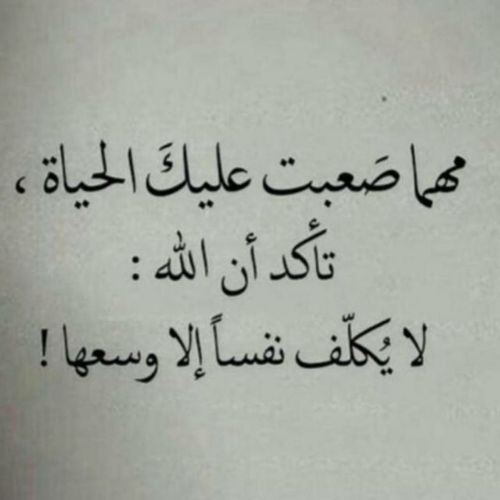 مهما صَعبت عليكَ الحياة ،
تأكد أن الله :
لا يُكلّف نفساً إلا وسعها !